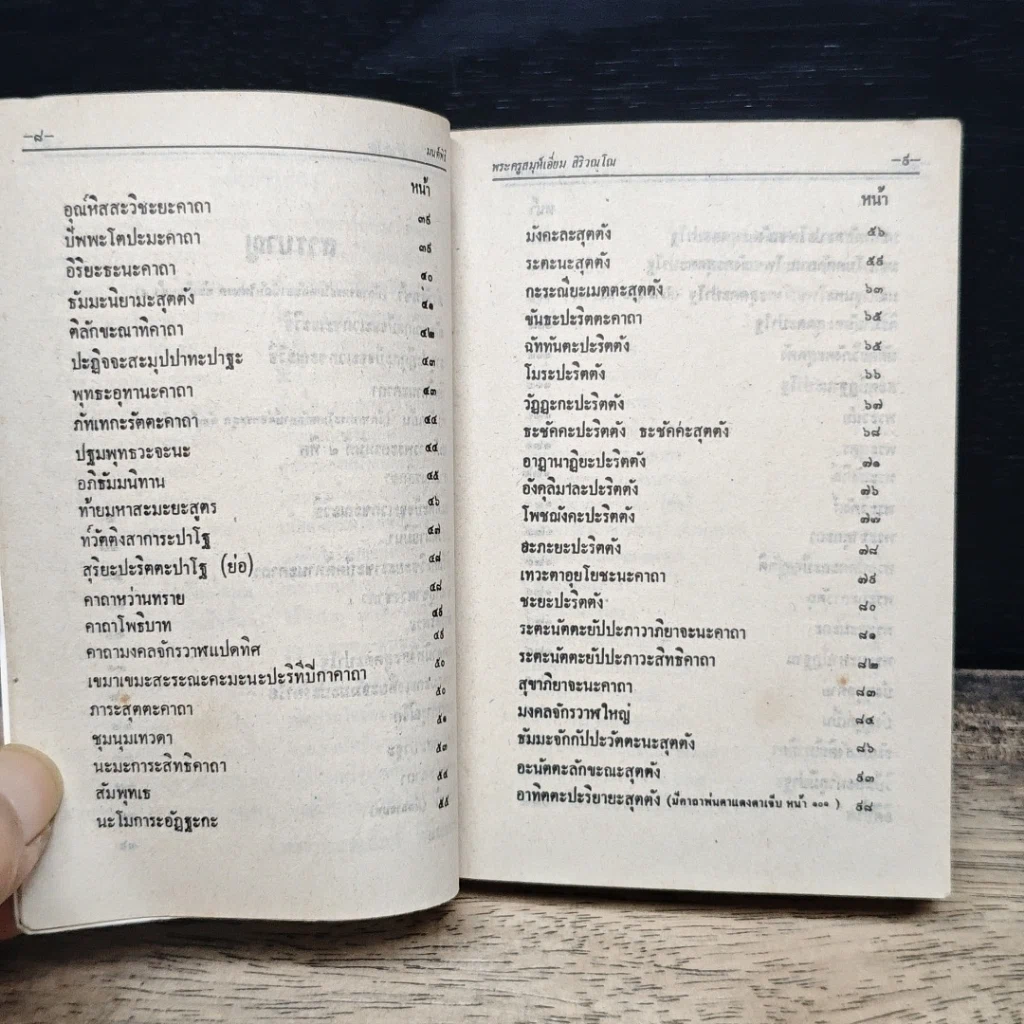 —๘—
มนต์พิธี
หน้า
อุณ์หิสสะวิชะยะคาถา ๓๙
บัพพะโตปะมะคาถา ๓๙
อิริยะธะนะคาถา ๔๐
ธัมมะนิยามะสุตตัง ๔๑
ติลักขะณาทิคาถา ๔๒
ปะฏิจจะสะมุปปาทะปาฐะ ๔๓
พุทธะอุทานะคาถา ๔๓
ภัทเทกะรัตตะคาถา ๔๔
ปฐมพุทธวะจะนะ ๔๔
อภิธัมมนิทาน ๔๕
ท้ายมหาสะมะยะสูตร ๔๖
ท์วัตติงสาการะปาโฐ ๔๗
สุริยะปะริตตะปาโฐ (ย่อ) ๔๘
คาถาหว่านทราย ๔๘
คาถาโพธิบาท ๔๙
คาถามงคลจักรวาฬแปดทิศ ๔๙
เขมาเขมะสะระณะคะมะนะปะริทีปีกาคาถา ๕๐
ภาระสุตตะคาถา ๕๐
ชุมนุมเทวดา ๕๑
นะมะการะสิทธิคาถา ๕๓
สัมพุทเธ ๕๔
นะโมการะอัฏฐะกะ ๕๕
พระครูสมุห์เอี่ยม สิริวณฺโณ
—๙—
หน้า
มังคะละสุตตัง ๕๖
ระตะนะสุตตัง ๕๙
กะระณียะเมตตะสุตตัง ๖๓
ขันธะปะริตตะคาถา ๖๕
ฉัททันตะปะริตตัง ๖๕
โมระปะริตตัง ๖๖
วัฏฏะกะปะริตตัง ๖๗
ธะชัคคะปะริตตัง ธะชัคค่ะสุตตัง ๖๘
อาฏานาฏิยะปะริตตัง ๗๑
อังคุลิมาละปะริตตัง ๗๖
โพชฌังคะปะริตตัง ๗๗
อะภะยะปะริตตัง ๗๘
เทวะตาอุยโยชะนะคาถา ๗๙
ชะยะปะริตตัง ๘๐
ระตะนัตตะยัปปะภาวาภิยาจะนะคาถา ๘๑
ระตะนัตตะยัปปะภาวะสิทธิคาถา ๘๒
สุขาภิยาจะนะคาถา ๘๓
มงคลจักรวาฬใหญ่ ๘๔
ธัมมะจักกัปปะวัตตะนะสุตตัง ๘๖
อะนัตตะลักขะณะสุตตัง ๙๓
อาทิตตะปะริยายะสุตตัง (มีคาถาพ่นตาแดงตาเจ็บ หน้า ๑๐๑ ) ๙๘